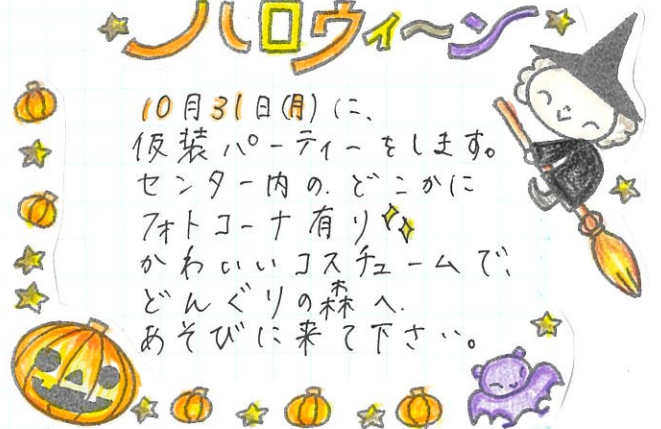 ハロウィ～ン
10月31日(月)に、
仮装パーティーをします。
センター内の、どこかに
フォトコーナ有り
かわいいコスチュームで、
どんぐりの森へ
あそびに来て下さい。